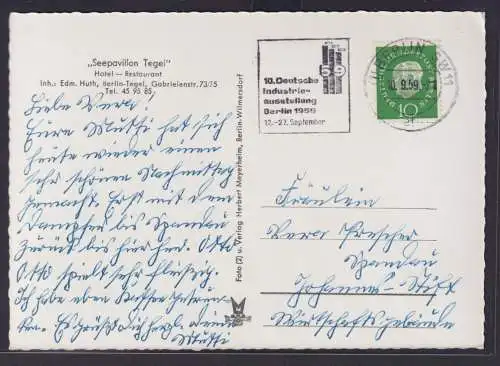 „Seepavillon Tegel“
Hotel — Restaurant
Inh.: Edm. Huth, Berlin-Tegel, Gabrielenstr. 73/75
Tel. 45 98 85
Liebe Vera!
Eure Mutti hat sich
heute wieder einen
sehr schönen Nachmittag
gemacht. Erst mit dem
Dampfer bis Spandau
zurück bis hier
Otto spielt sehr fleißig.
Ich habe eben
Es grüßt Dich herzl. Deine
Mutti
Foto (2) u. Verlag Herbert Meyerheim, Berlin-Wilmersdorf
10. Deutsche
Industrie-
ausstellung
Berlin 1959
12.-27. September
BERLIN SW 11
9.59
10
Fräulein
Vera
Spandau
Johannes-Stift
Wirtschaftsgebäude